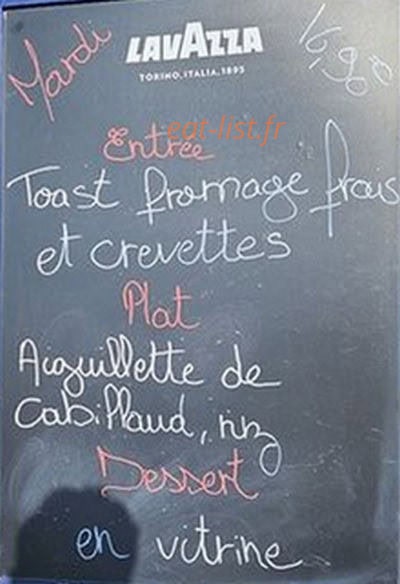 Mardi
LAVAZZA
TORINO, ITALIA, 1895
16,90€
eat-list.fr
Entrée
Toast fromage frais
et crevettes
Plat
Aiguillette de
Cabillaud, riz
Dessert
en vitrine